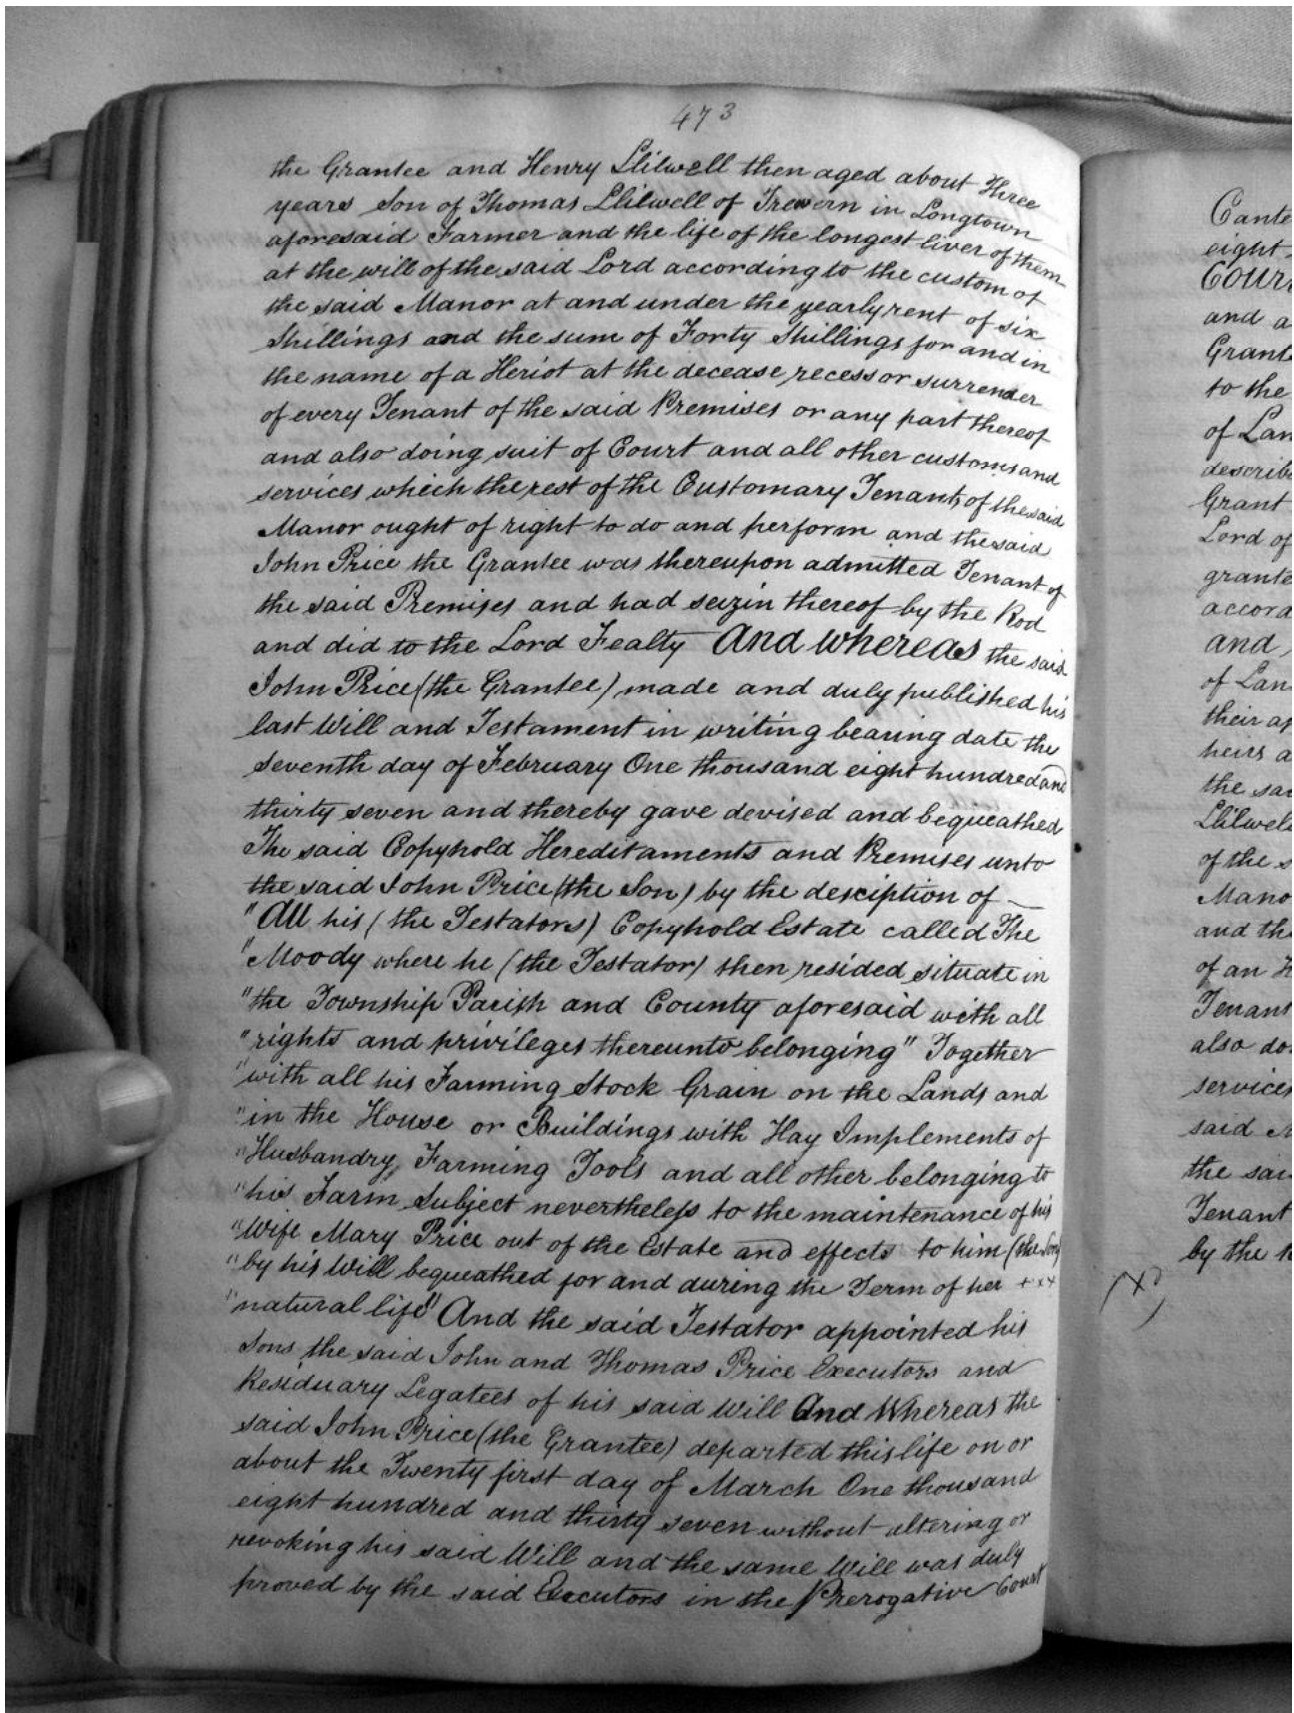 473
the Grantee and Henry Llilwell then aged about Three
years Son of Thomas Llilwell of Trewern in Longtown
aforesaid Farmer and the life of the longest liver of them
at the will of the said Lord according to the custom of
the said Manor at and under the yearly rent of six
Shillings and the sum of Forty Shillings for and in
the name of a Heriot at the decease recess or surrender
of every Tenant of the said Premises or any part thereof
and also doing suit of Court and all other customs and
services which the rest of the Customary Tenants of the said
Manor ought of right to do and perform and the said
John Price the Grantee was thereupon admitted Tenant of
the said Premises and had seizin thereof by the Rod
and did to the Lord Fealty And whereas the said
John Price (the Grantee) made and duly published his
last Will and Testament in writing bearing date the
Seventh day of February One thousand eight hundred and
thirty seven and thereby gave devised and bequeathed
The said Copyhold Hereditaments and Premises unto
the said John Price (the Son) by the desciption of —
"All his (the Testators) Copyhold Estate called The
"Moody where he (the Testator) then resided situate in
"the Township Parish and County aforesaid with all
"rights and privileges thereunto belonging" Together
"with all his Farming Stock Grain on the Lands and
"in the House or Buildings with Hay Implements of
"Husbandry, Farming Tools and all other belonging to
"his Farm Subject nevertheless to the maintenance of his
"Wife Mary Price out of the Estate and effects to him (the Son)
"by his Will bequeathed for and during the Term of her + x x
"natural life" And the said Testator appointed his
Sons the said John and Thomas Price Executors and
Residuary Legatees of his said Will And Whereas the
said John Price (the Grantee) departed this life on or
about the Twenty first day of March One thousand
eight hundred and thirty seven without altering or
revoking his said Will and the same Will was duly
proved by the said Executors in the Prerogative Court
Cante
eight
COUR
and a
Grant
to the
of Lan
describ
Grant
Lord of
grante
accord
and
of Lan
their ap
heirs a
the sa
Llilwel
of the s
Mano
and th
of an H
Tenant
also do
services
said M
the sai
Tenant
by the R
(x)